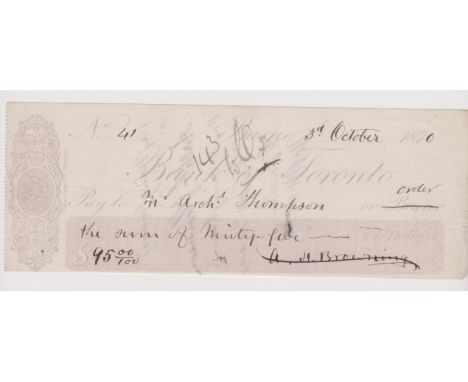 No. 41 3d October 1870
143
Bank of Toronto
Pay to Mr. Archd. Thompson or order
the sum of Ninety five
$95 00/100 A. H. Browning